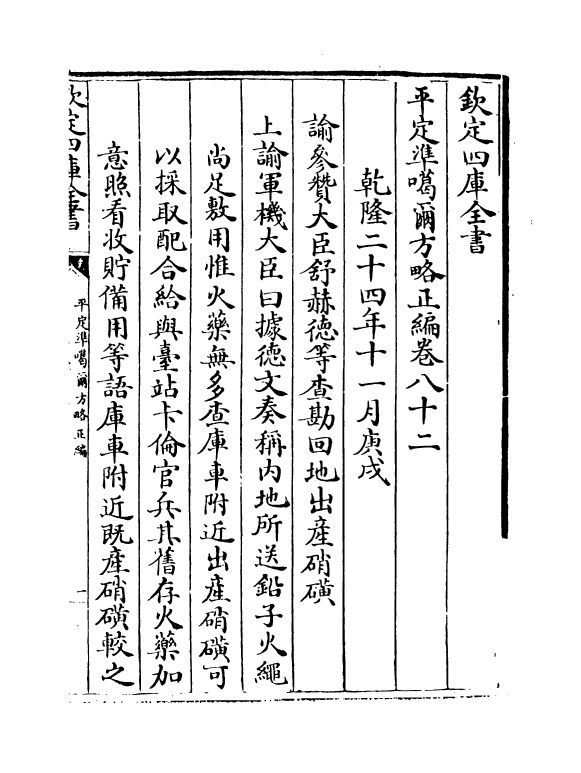 欽定四庫全書
平定準噶爾方略正編卷八十二
乾隆二十四年十一月庚戌
諭參贊大臣舒赫徳等查勘回地出産硝磺
上諭軍機大臣曰據徳文奏稱内地所送鉛子火繩
尚足敷用惟火藥無多查庫車附近出産硝磺可
以採取配合給與臺站卡倫官兵其舊存火藥加
意照看收貯備用等語庫車附近既産硝磺較之
欽定四庫全書
平定準噶爾方略 正編
一